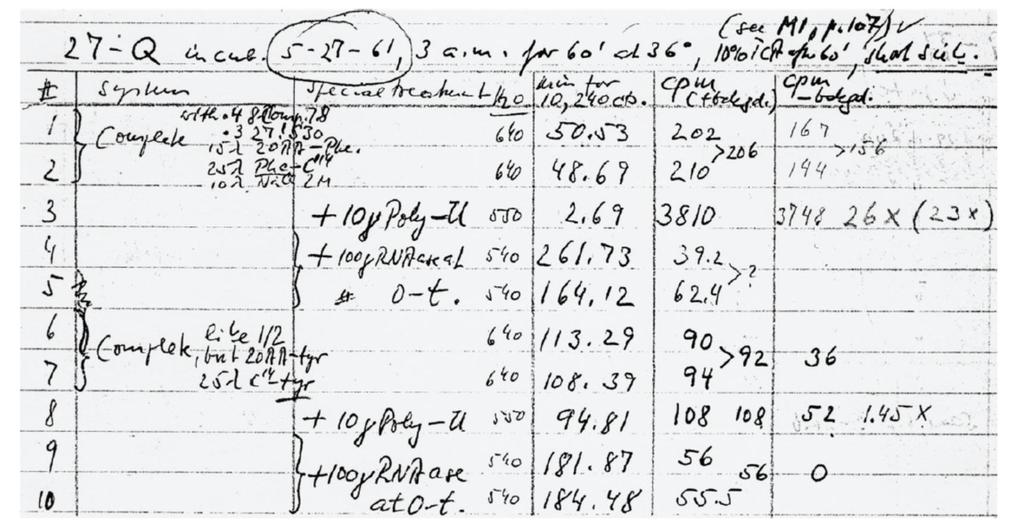 (see M1, p.107) ✓
27-Q incub. 5-27-61, 3 a.m. for 60' at 36°, 10% TCA 60',
# System Special treatment H2O min for 10,240 cts. cpm (+bckgd.) cpm -bckgd.
with .48
1 Complete .3 27 1530 640 50.53 202 167
15λ 20AA-Phe. >206 >156
2 25λ Phe-C14 640 48.69 210 144
10λ 2M
3 +10γ Poly-U 550 2.69 3810 3748 26x (23x)
4 +100γ RNAase at 540 261.73 39.2
>?
5 0-t. 540 164.12 62.4
6 like 1/2 640 113.29 90
Complete, but 20AA-tyr >92 36
7 25λ C14-tyr 640 108.39 94
8 + 10γ Poly-U 550 94.81 108 108 52 1.45x
9 +100γ RNAase 540 181.87 56
56 0
10 at 0-t. 540 184.48 55.5